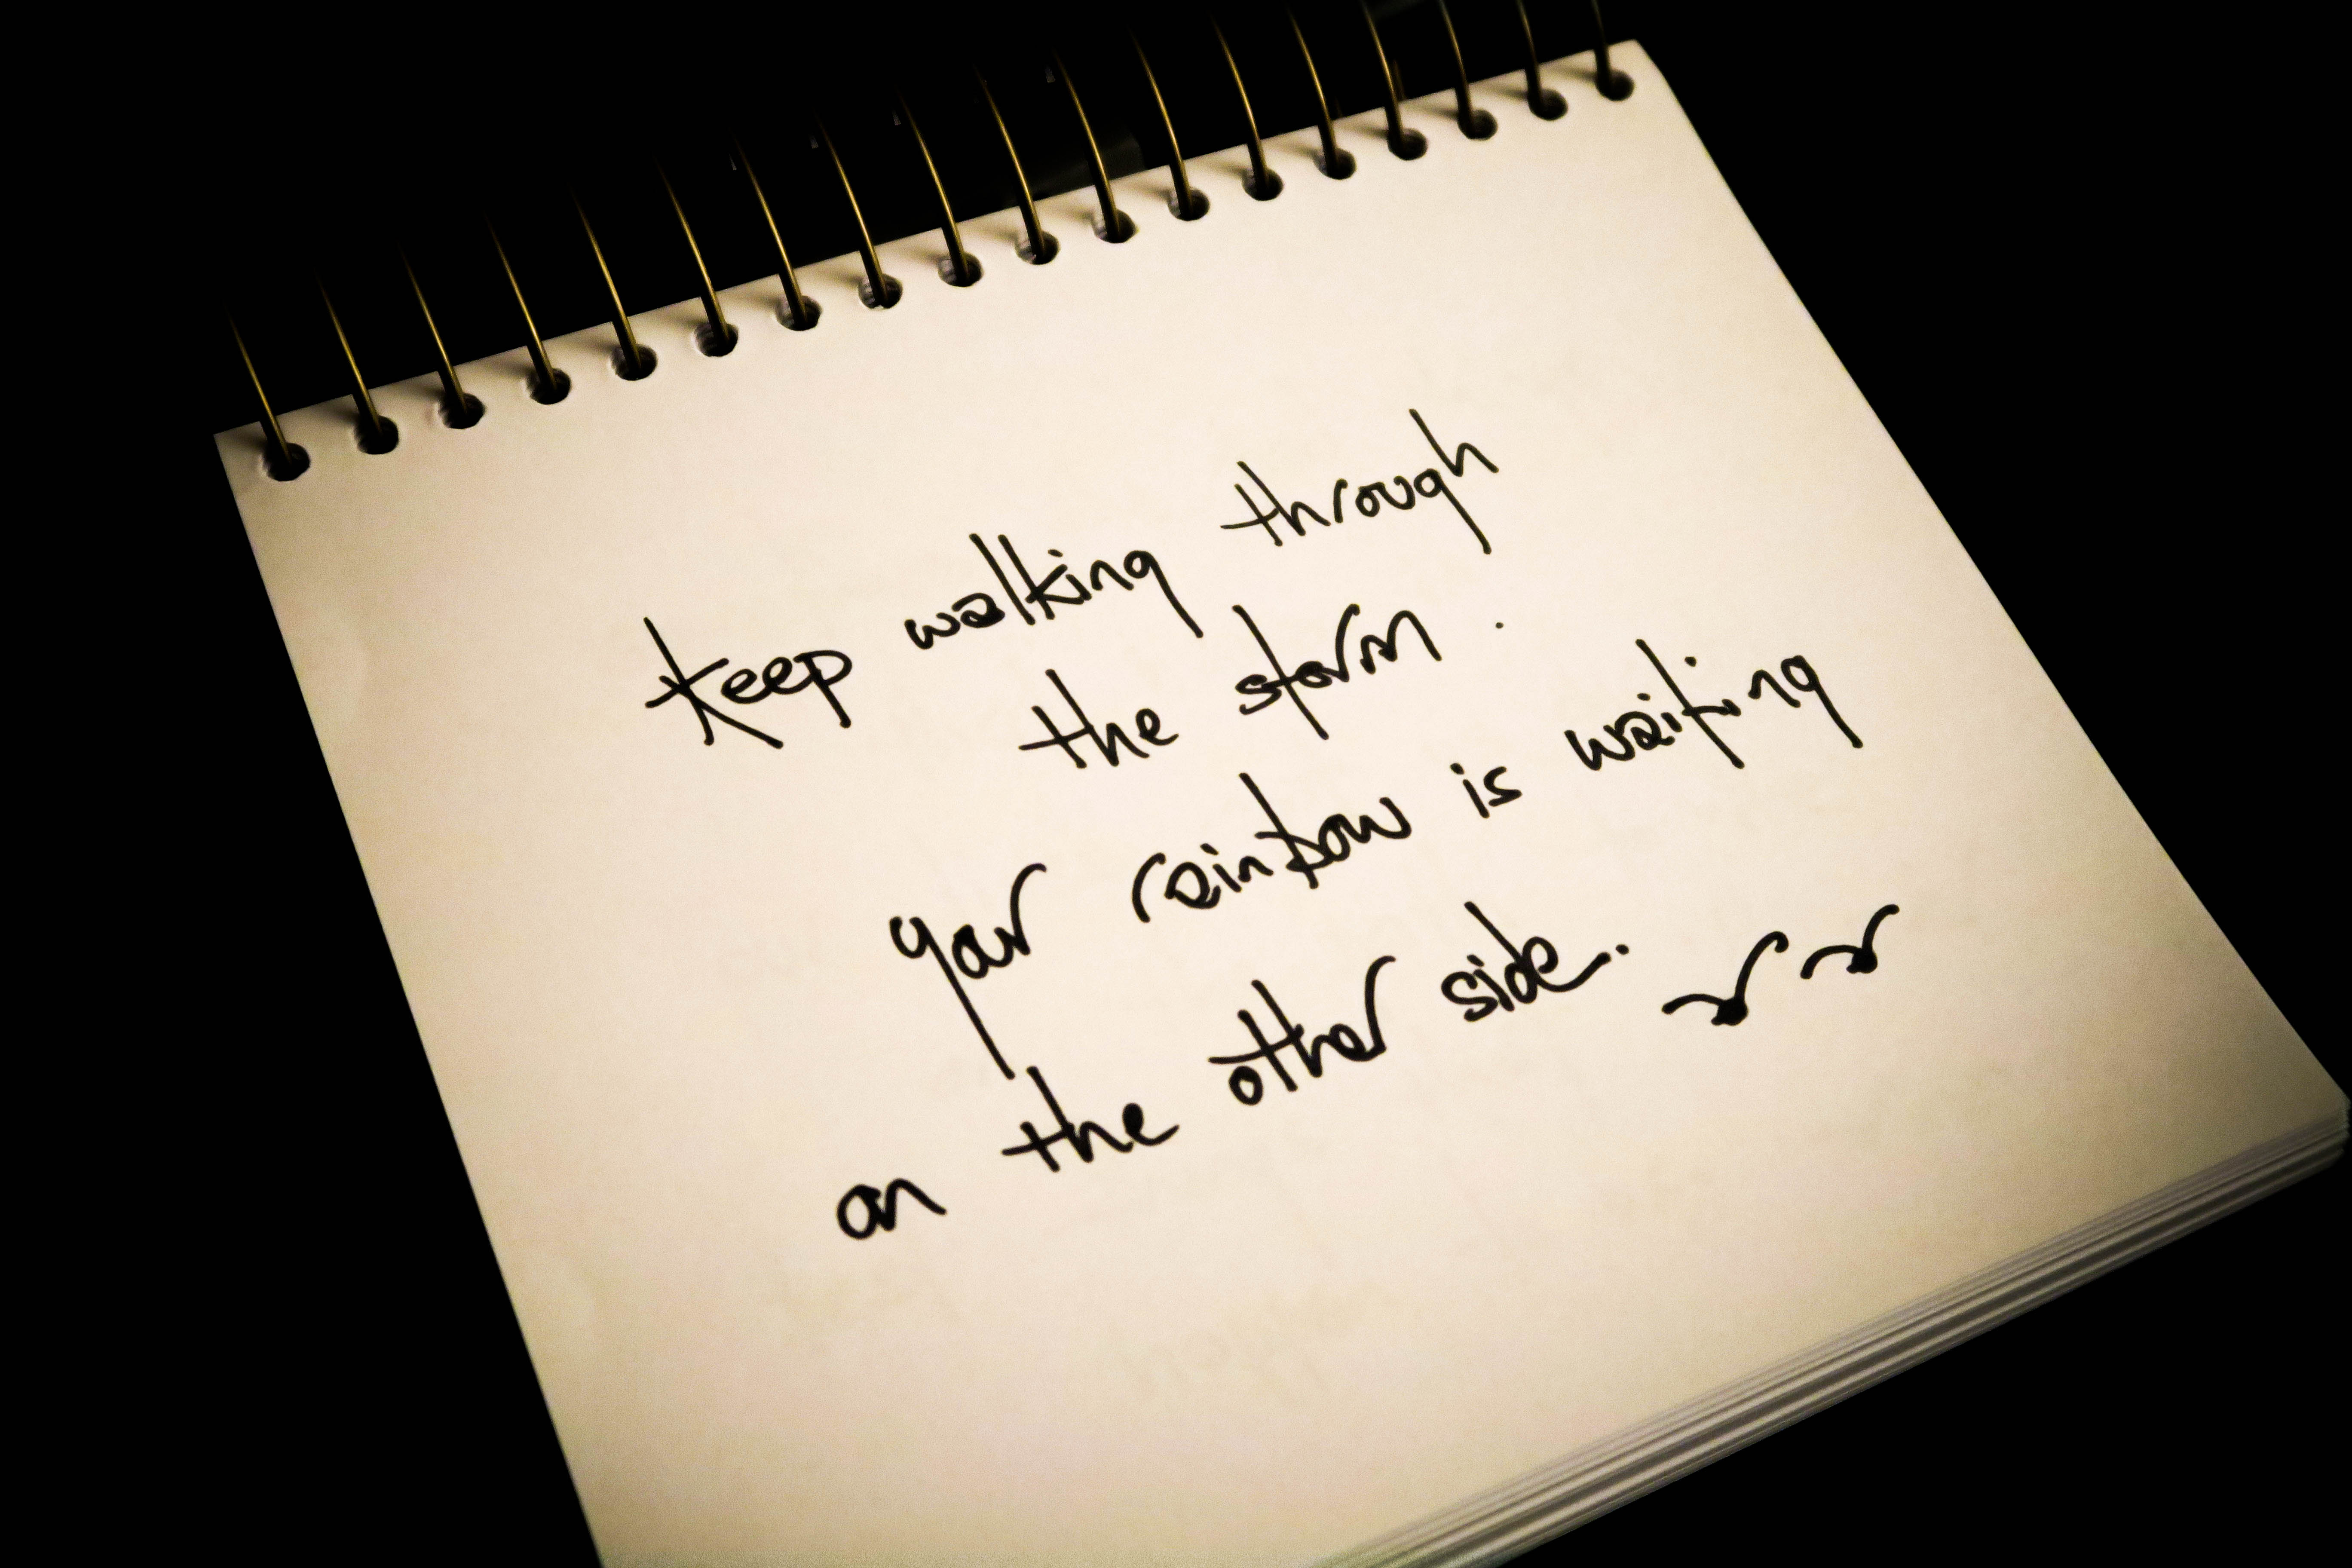 Keep walking through
the storm.
your rainbow is waiting
on the other side.